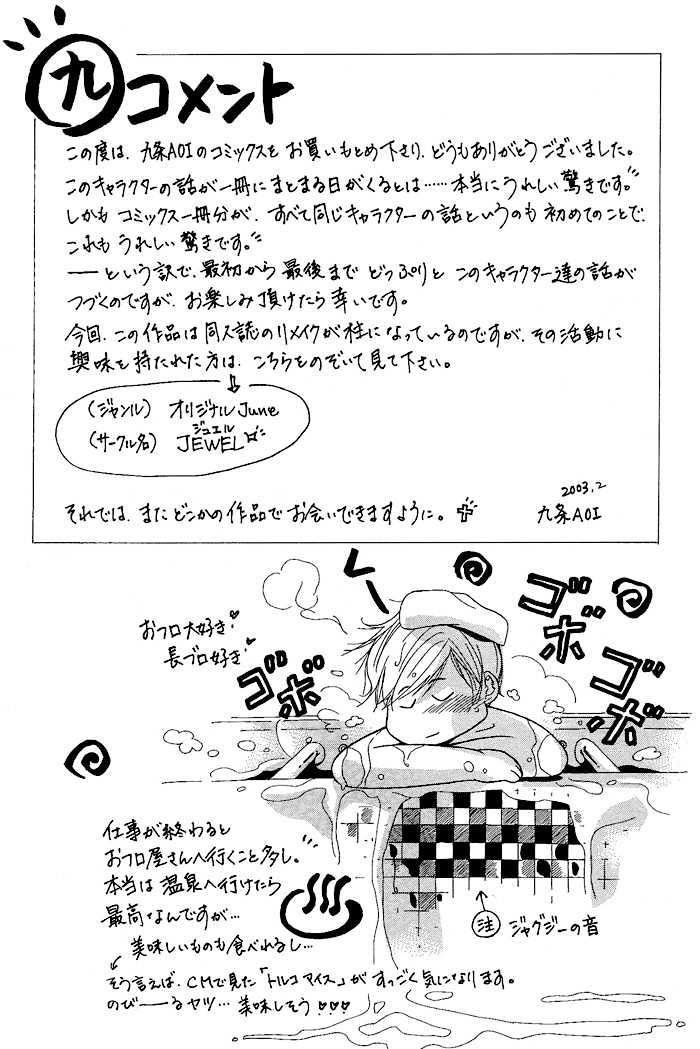 九コメント
この度は、九条AOIのコミックスを お買いもとめ下さり、どうもありがとうございました。
このキャラクターの話が一冊にまとまる日がくるとは……本当にうれしい驚きです。
しかも コミックス一冊分が、すべて同じキャラクターの話というのも 初めてのことで、
これも うれしい驚きです。
――という訳で、最初から 最後まで どっぷりと このキャラクター達の話が
つづくのですが、お楽しみ頂けたら 幸いです。
今回、この作品は同人誌のリメイクが柱になっているのですが、その活動に
興味を持たれた方は、こちらをのぞいて見て下さい。
(ジャンル) オリジナルJune
(サークル名) JEWEL
ジュエル
それでは、またどこかの作品で お会いできますように。
2003.2
九条AOI
おフロ大好き♥
長ブロ好き♥
ゴボ
ゴボ
ゴボ
仕事が終わると
おフロ屋さんへ行くこと多し。
本当は 温泉へ行けたら
最高なんですが…
美味しいものも食べれるし…
注 ジャグジーの音
そう言えば、CMで見た「トルコアイス」が すっごく気になります。
のび――るヤツ… 美味しそう♥♥♥